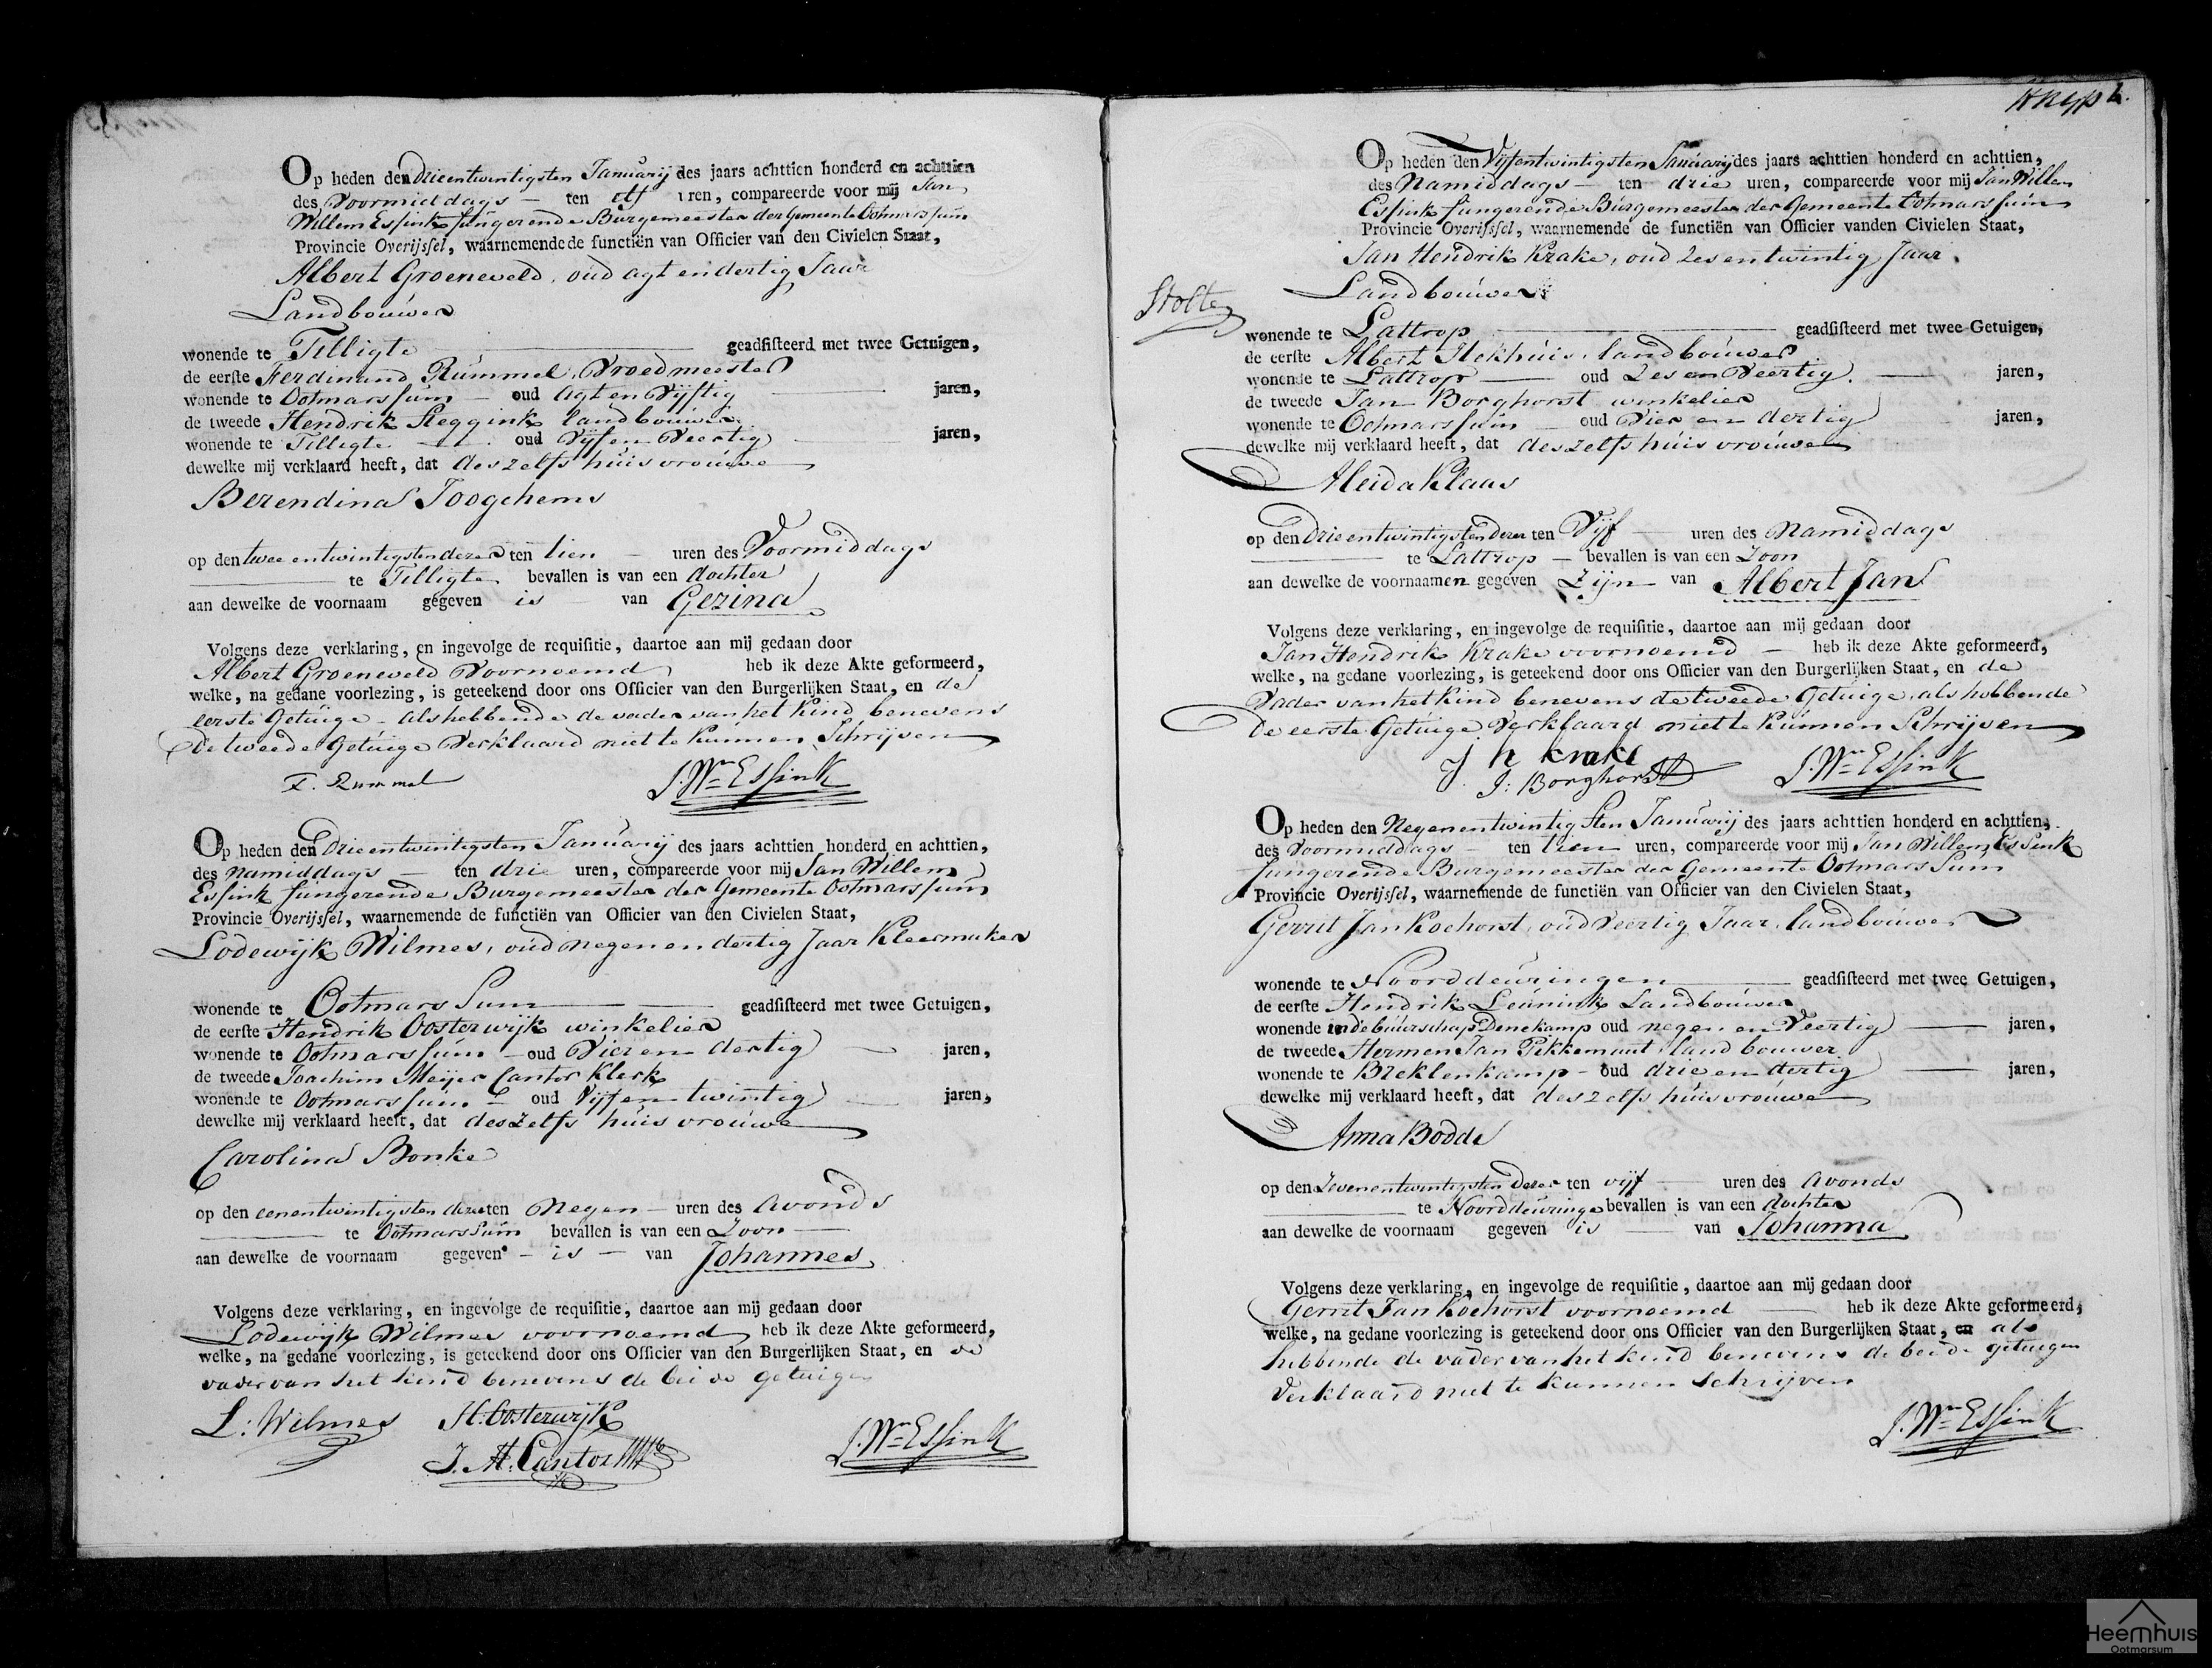 Op heden den Drieentwintigsten Januarij des jaars achttien honderd en achttien
des Voormiddags — ten elf uren, compareerde voor mij Jan
Willem Essink fungerende Burgemeester der Gemeente Ootmarssum
Provincie Overijssel, waarnemende de functiën van Officier van den Civielen Staat,
Albert Groeneveld, oud agt en dertig Jaar
Landbouwer
wonende te Tilligte geadsisteerd met twee Getuigen,
de eerste Ferdinand Rummel, Vroedmeester
wonende te Ootmarssum — oud Agt en Vijftig jaren,
de tweede Hendrik Reggink landbouwer
wonende te Tilligte — oud Vijf en Veertig jaren,
dewelke mij verklaard heeft, dat deszelfs huisvrouwe
Berendina Joogchems
op den twee entwintigsten dezer ten tien — uren des Voormiddags
te Tilligte bevallen is van een dochter
aan dewelke de voornaam gegeven is — van Gezina
Volgens deze verklaring, en ingevolge de requisitie, daartoe aan mij gedaan door
Albert Groeneveld Voornoemd heb ik deze Akte geformeerd,
welke, na gedane voorlezing, is geteekend door ons Officier van den Burgerlijken Staat, en de
eerste Getuige — als hebbende de vader van het Kind benevens
de tweede Getuige Verklaard niet te Kunnen Schrijven
F. Rummel J. Wm Essink
Op heden den Drieentwintigsten Januarij des jaars achttien honderd en achttien,
des namiddags — ten drie uren, compareerde voor mij Jan Willem
Essink fungerende Burgemeester der Gemeente Ootmarssum
Provincie Overijssel, waarnemende de functiën van Officier van den Civielen Staat,
Lodewijk Wilmes, oud negen en dertig Jaar Kleermaker
wonende te Ootmarssum — geadsisteerd met twee Getuigen,
de eerste Hendrik Oosterwijk winkelier
wonende te Ootmarssum — oud Vier en dertig — jaren,
de tweede Joachim Meijer Cantor Klerk
wonende te Ootmarssum — oud Vijf en twintig — jaren,
dewelke mij verklaard heeft, dat deszelfs huisvrouwe
Carolina Bonke
op den eenentwintigsten dezer ten Negen — uren des Avonds
te Ootmarssum bevallen is van een Zoon —
aan dewelke de voornaam gegeven — is — van Johannes
Volgens deze verklaring, en ingevolge de requisitie, daartoe aan mij gedaan door
Lodewijk Wilmes voornoemd heb ik deze Akte geformeerd,
welke, na gedane voorlezing, is geteekend door ons Officier van den Burgerlijken Staat, en de
vader van het kind benevens de beide getuigen
L: Wilmes H. Oosterwijk
J. M. Cantor J. Wm Essink
Op heden den Vijfentwintigsten Januarij des jaars achttien honderd en achttien,
des Namiddags — ten drie uren, compareerde voor mij Jan Willem
Essink fungerende Burgemeester der Gemeente Ootmarssum
Provincie Overijssel, waarnemende de functiën van Officier van den Civielen Staat,
Jan Hendrik Krake, oud Zes en twintig Jaar,
Landbouwer
Stolte
wonende te Lattrop — geadsisteerd met twee Getuigen,
de eerste Albert Stekhuis, landbouwer
wonende te Lattrop — oud Zes en Veertig. — jaren,
de tweede Jan Borghorst winkelier
wonende te Ootmarssum — oud Vier en dertig jaren,
dewelke mij verklaard heeft, dat deszelfs huisvrouwe
Aleida Klaas
op den Drie entwintigsten dezer ten Vijf — uren des Namiddags
te Lattrop — bevallen is van een Zoon
aan dewelke de voornaamen gegeven Zijn — van Albert Jan
Volgens deze verklaring, en ingevolge de requisitie, daartoe aan mij gedaan door
Jan Hendrik Krake voornoemd — heb ik deze Akte geformeerd,
welke, na gedane voorlezing, is geteekend door ons Officier van den Burgerlijken Staat, en de
Vader van het Kind benevens de tweede Getuige, als hebbende
de eerste Getuige Verklaard niet te Kunnen Schrijven
j h krake
J: Borghorst J. Wm Essink
Op heden den Negenentwintigsten Januarij des jaars achttien honderd en achttien,
des Voormiddags — ten tien uren, compareerde voor mij Jan Willem Essink
fungerende Burgemeester der Gemeente Ootmarssum
Provincie Overijssel, waarnemende de functiën van Officier van den Civielen Staat,
Gerrit Jan Koehorst, oud Veertig Jaar, landbouwer
wonende te Noorddeuringen — geadsisteerd met twee Getuigen,
de eerste Hendrik Leunink Landbouwer
wonende in de buurschap Denekamp oud negen en Veertig — jaren,
de tweede Hermen Jan Pikkemaat landbouwer
wonende te Breklenkamp — oud drie en dertig — jaren,
dewelke mij verklaard heeft, dat deszelfs huisvrouwe
Anna Bodde
op den Zevenentwintigsten dezer ten vijf — uren des Avonds
te Noorddeuringe bevallen is van een dochter
aan dewelke de voornaam gegeven is — van Johanna
Volgens deze verklaring, en ingevolge de requisitie, daartoe aan mij gedaan door
Gerrit Jan Koehorst voornoemd — heb ik deze Akte geformeerd,
welke, na gedane voorlezing is geteekend door ons Officier van den Burgerlijken Staat, en als
hebbende de vader van het kind benevens de beide getuigen
Verklaard niet te kunnen schrijven
J. Wm Essink
Heemhuis
Ootmarsum